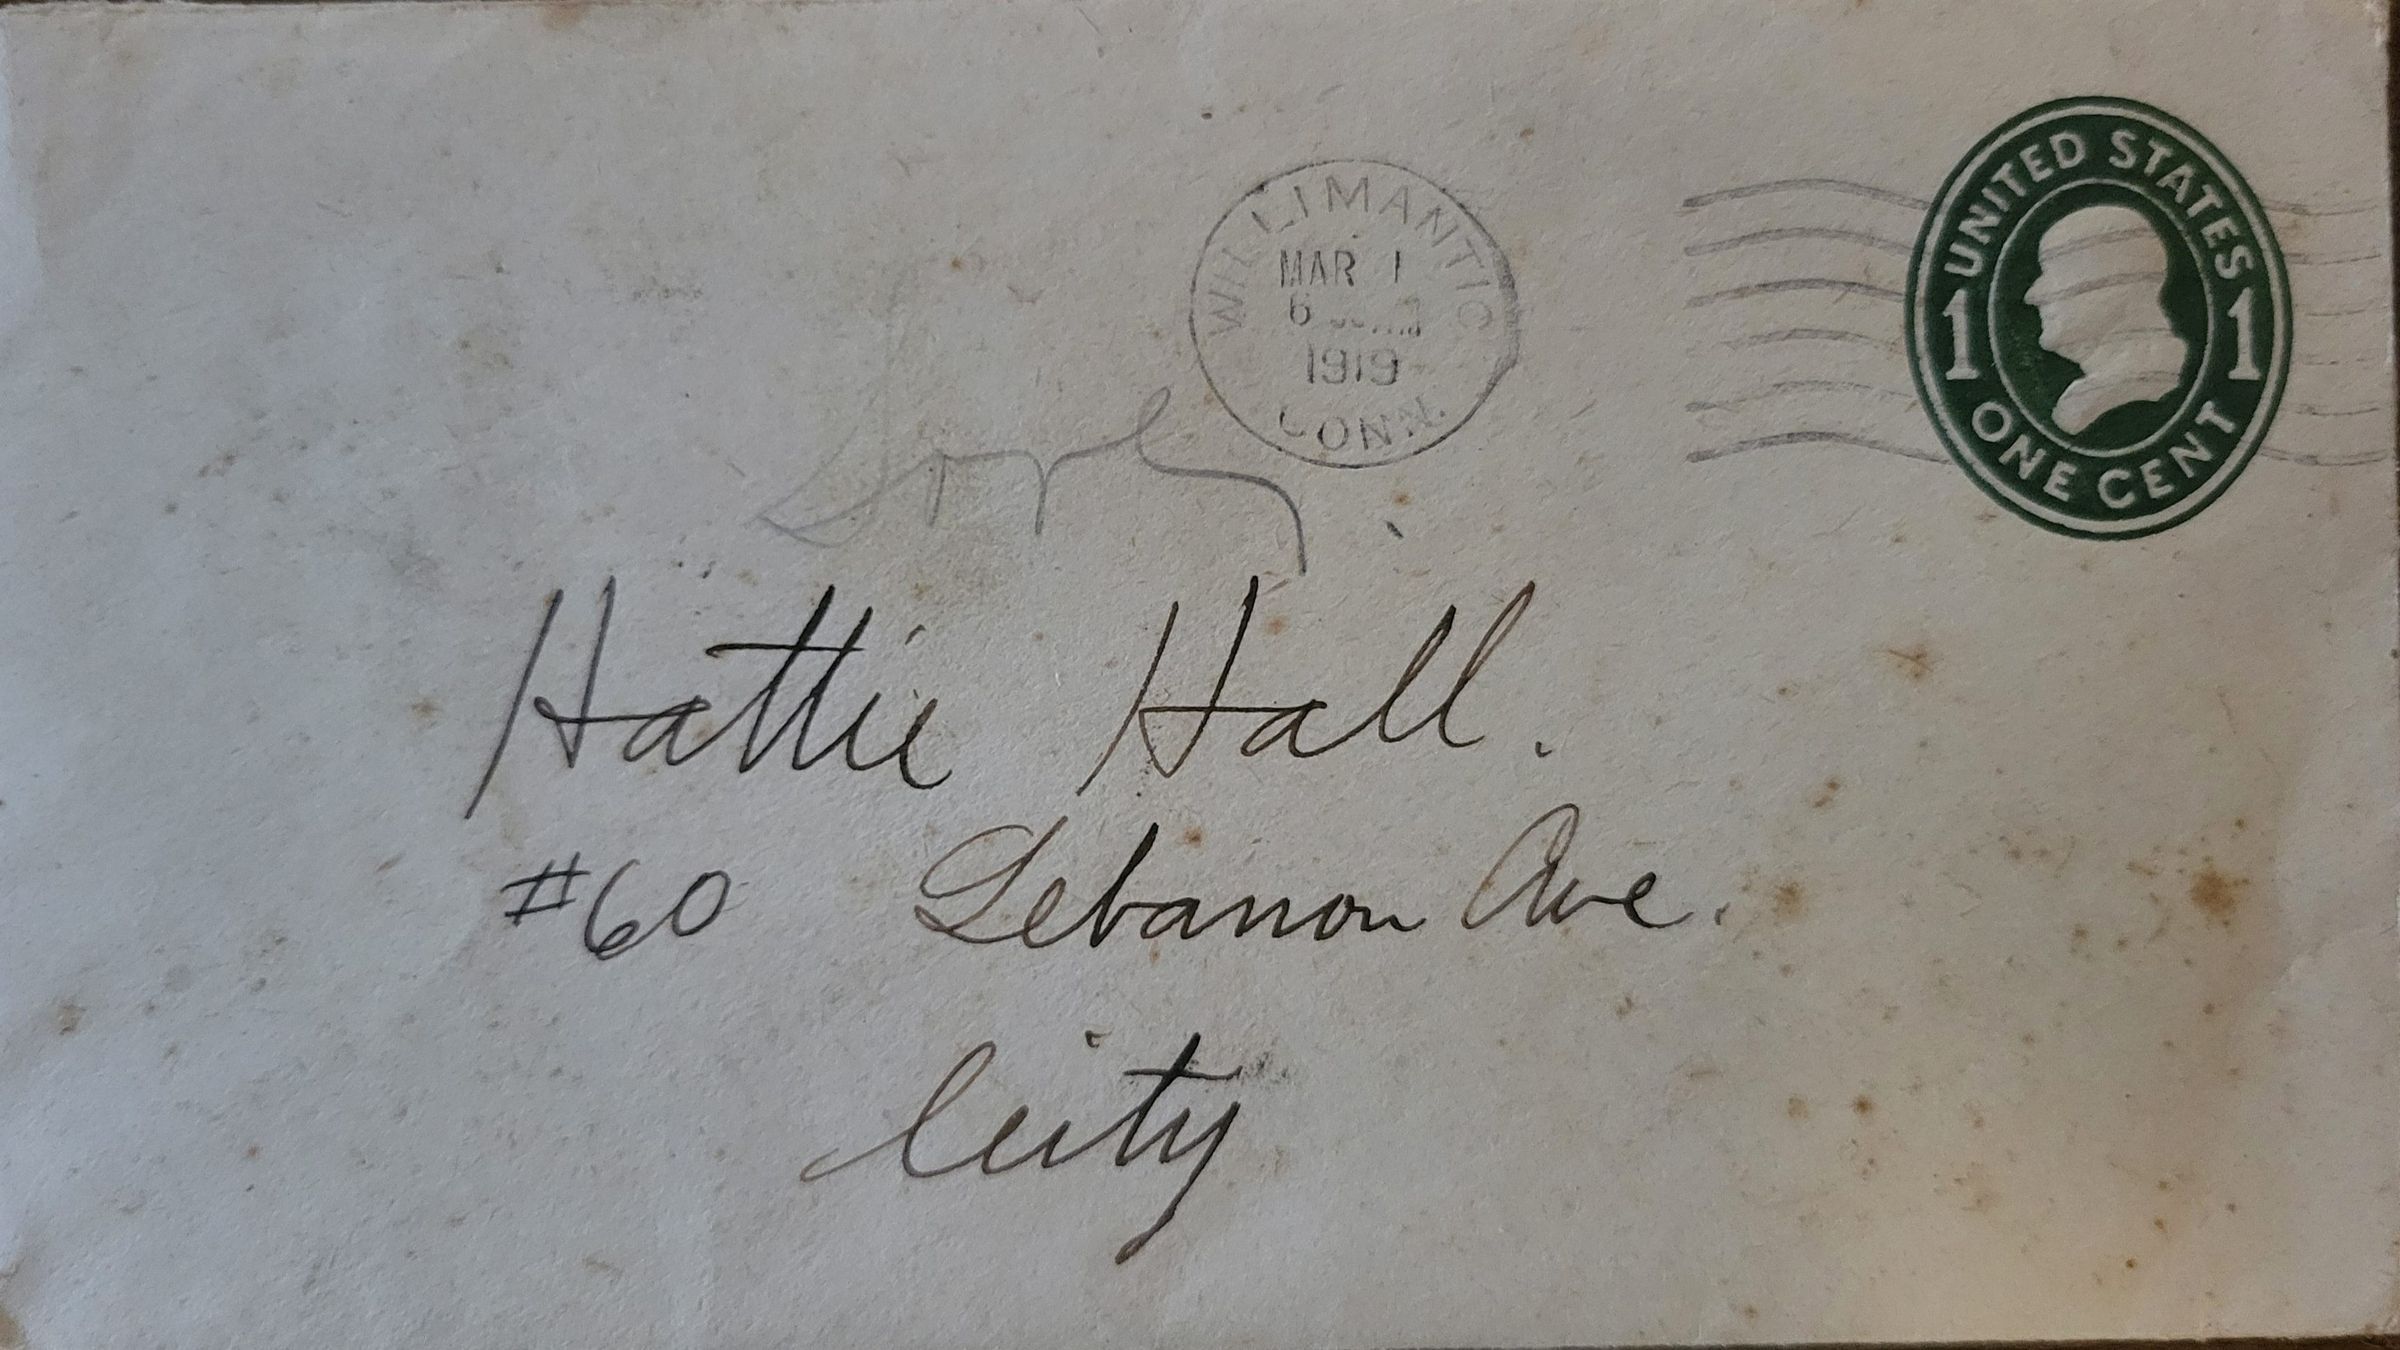 UNITED STATES
1 1
ONE CENT
WILLIMANTIC
MAR 1
6
1919
CONN.
Hattie Hall.
#60 Lebanon Ave.
City